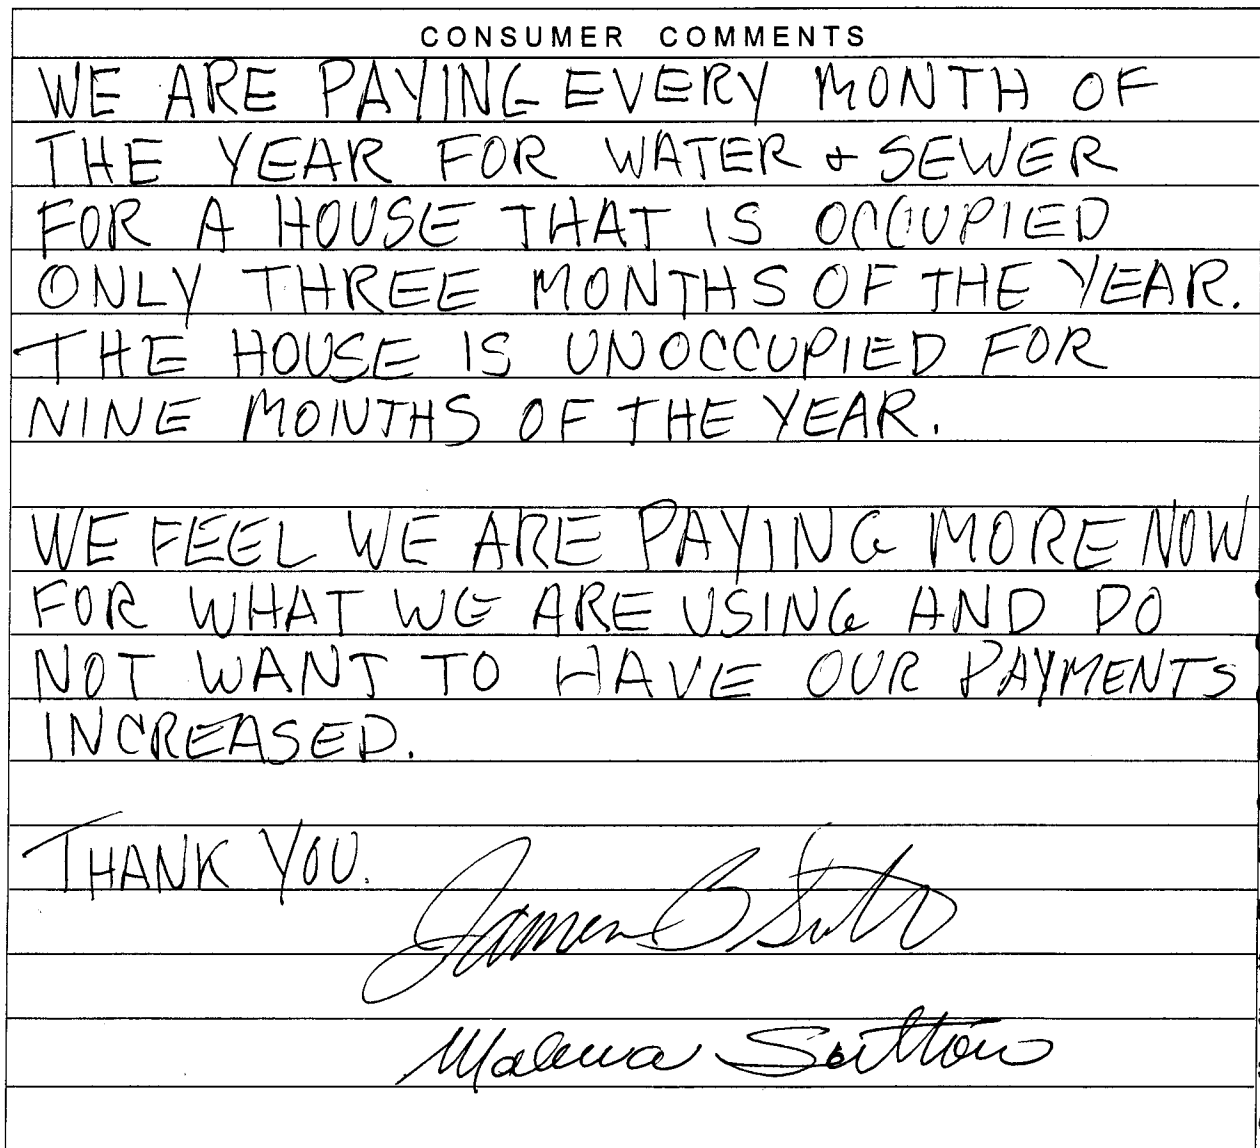 CONSUMER COMMENTS
WE ARE PAYING EVERY MONTH OF
THE YEAR FOR WATER & SEWER
FOR A HOUSE THAT IS OCCUPIED
ONLY THREE MONTHS OF THE YEAR.
THE HOUSE IS UNOCCUPIED FOR
NINE MONTHS OF THE YEAR.
WE FEEL WE ARE PAYING MORE NOW
FOR WHAT WE ARE USING AND DO
NOT WANT TO HAVE OUR PAYMENTS
INCREASED.
THANK YOU.
James B
Sutton